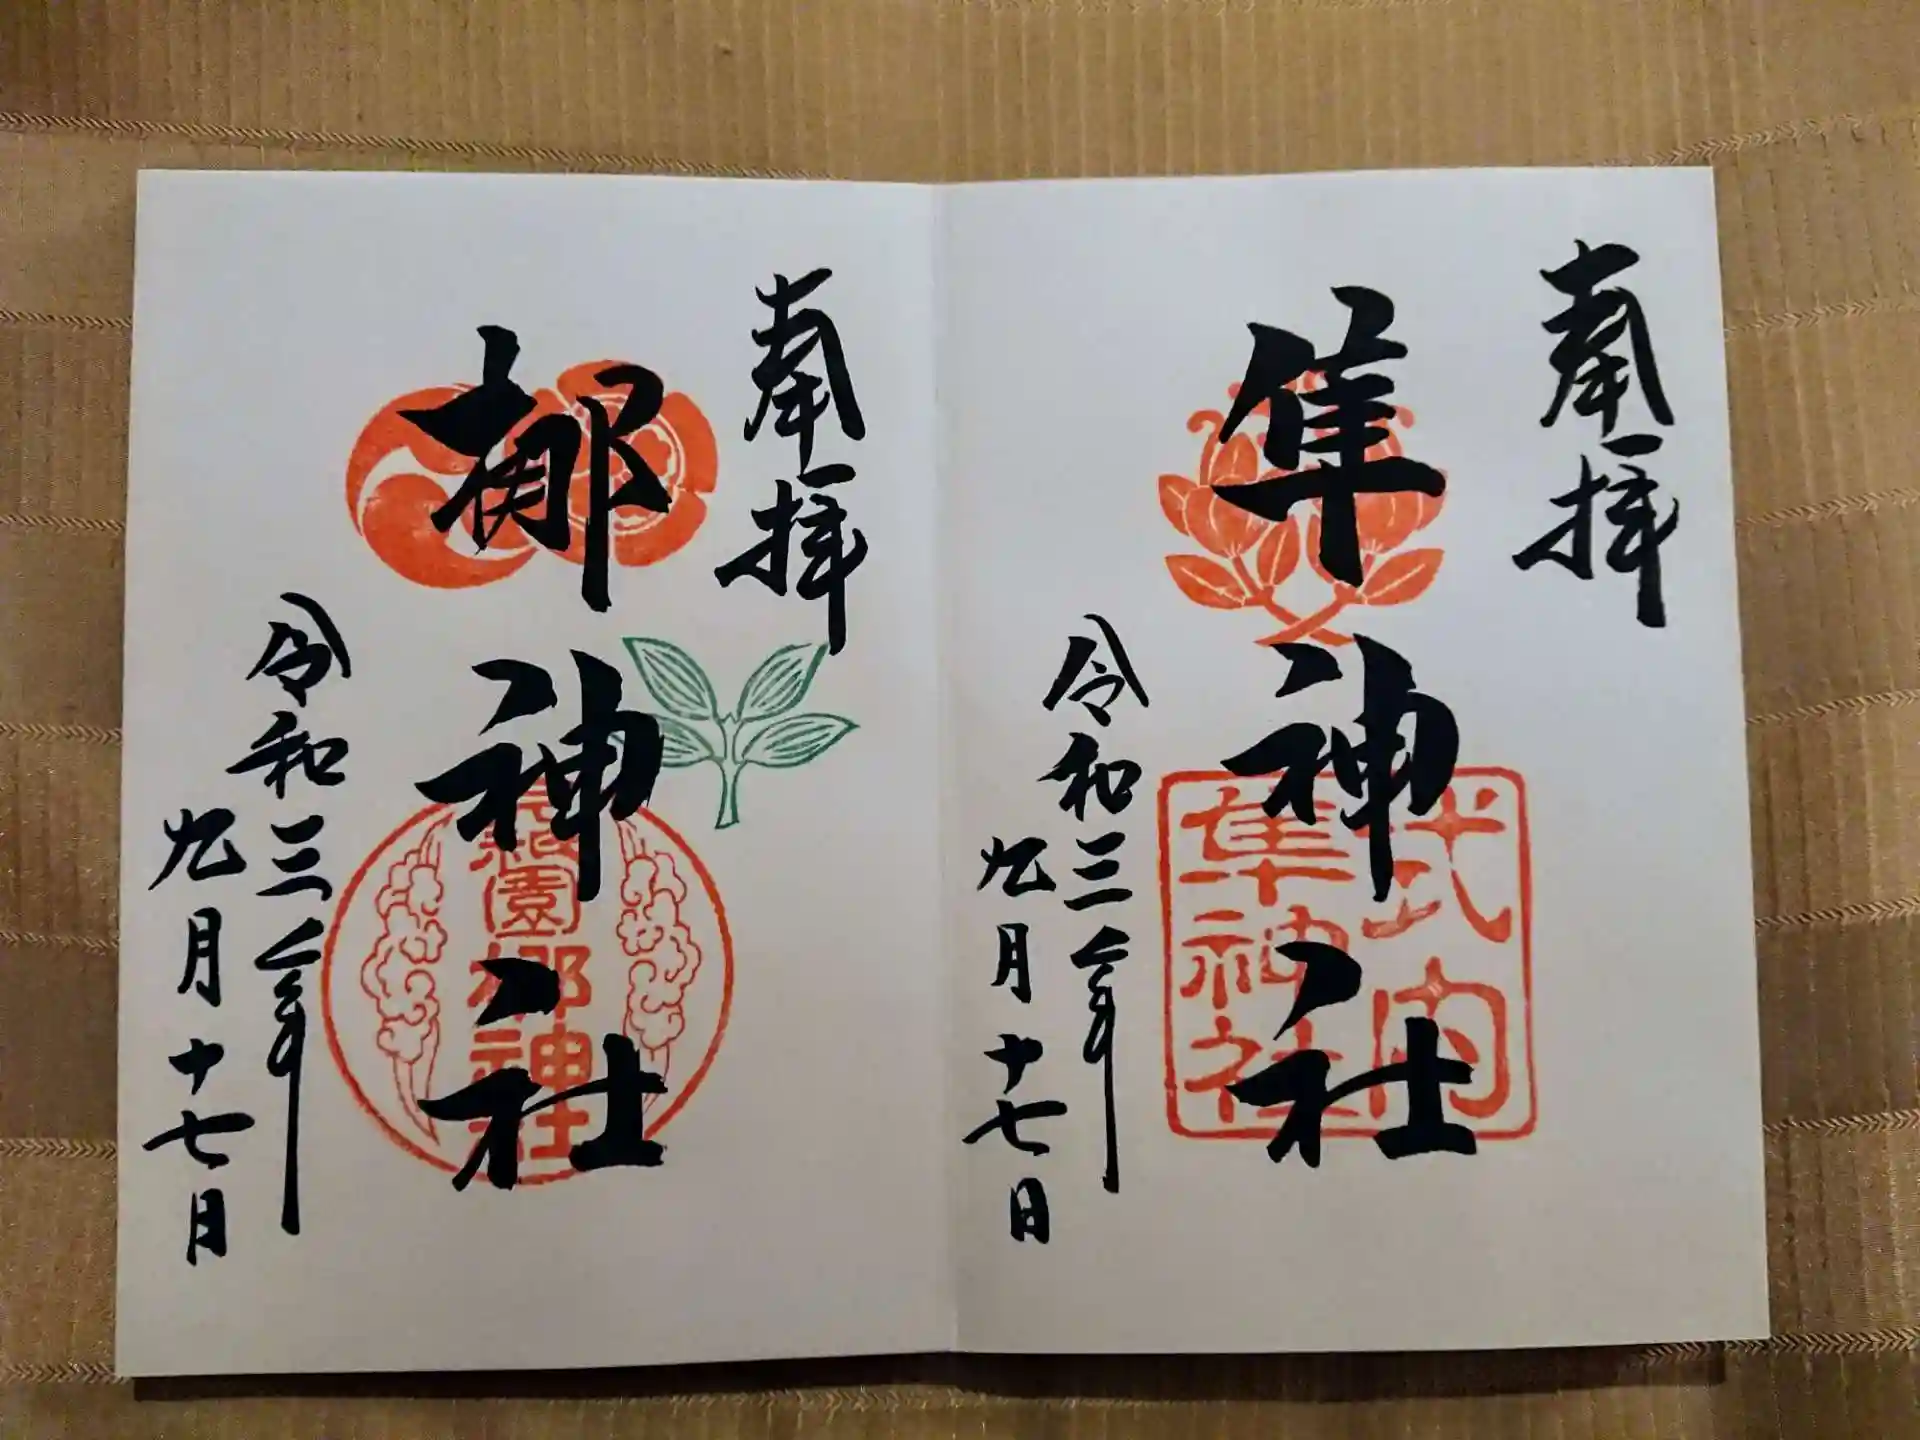 奉拝
隼神社
式内
隼神社
令和三年
九月十七日
奉拝
梛神社
元祇園梛神社
令和三年
九月十七日